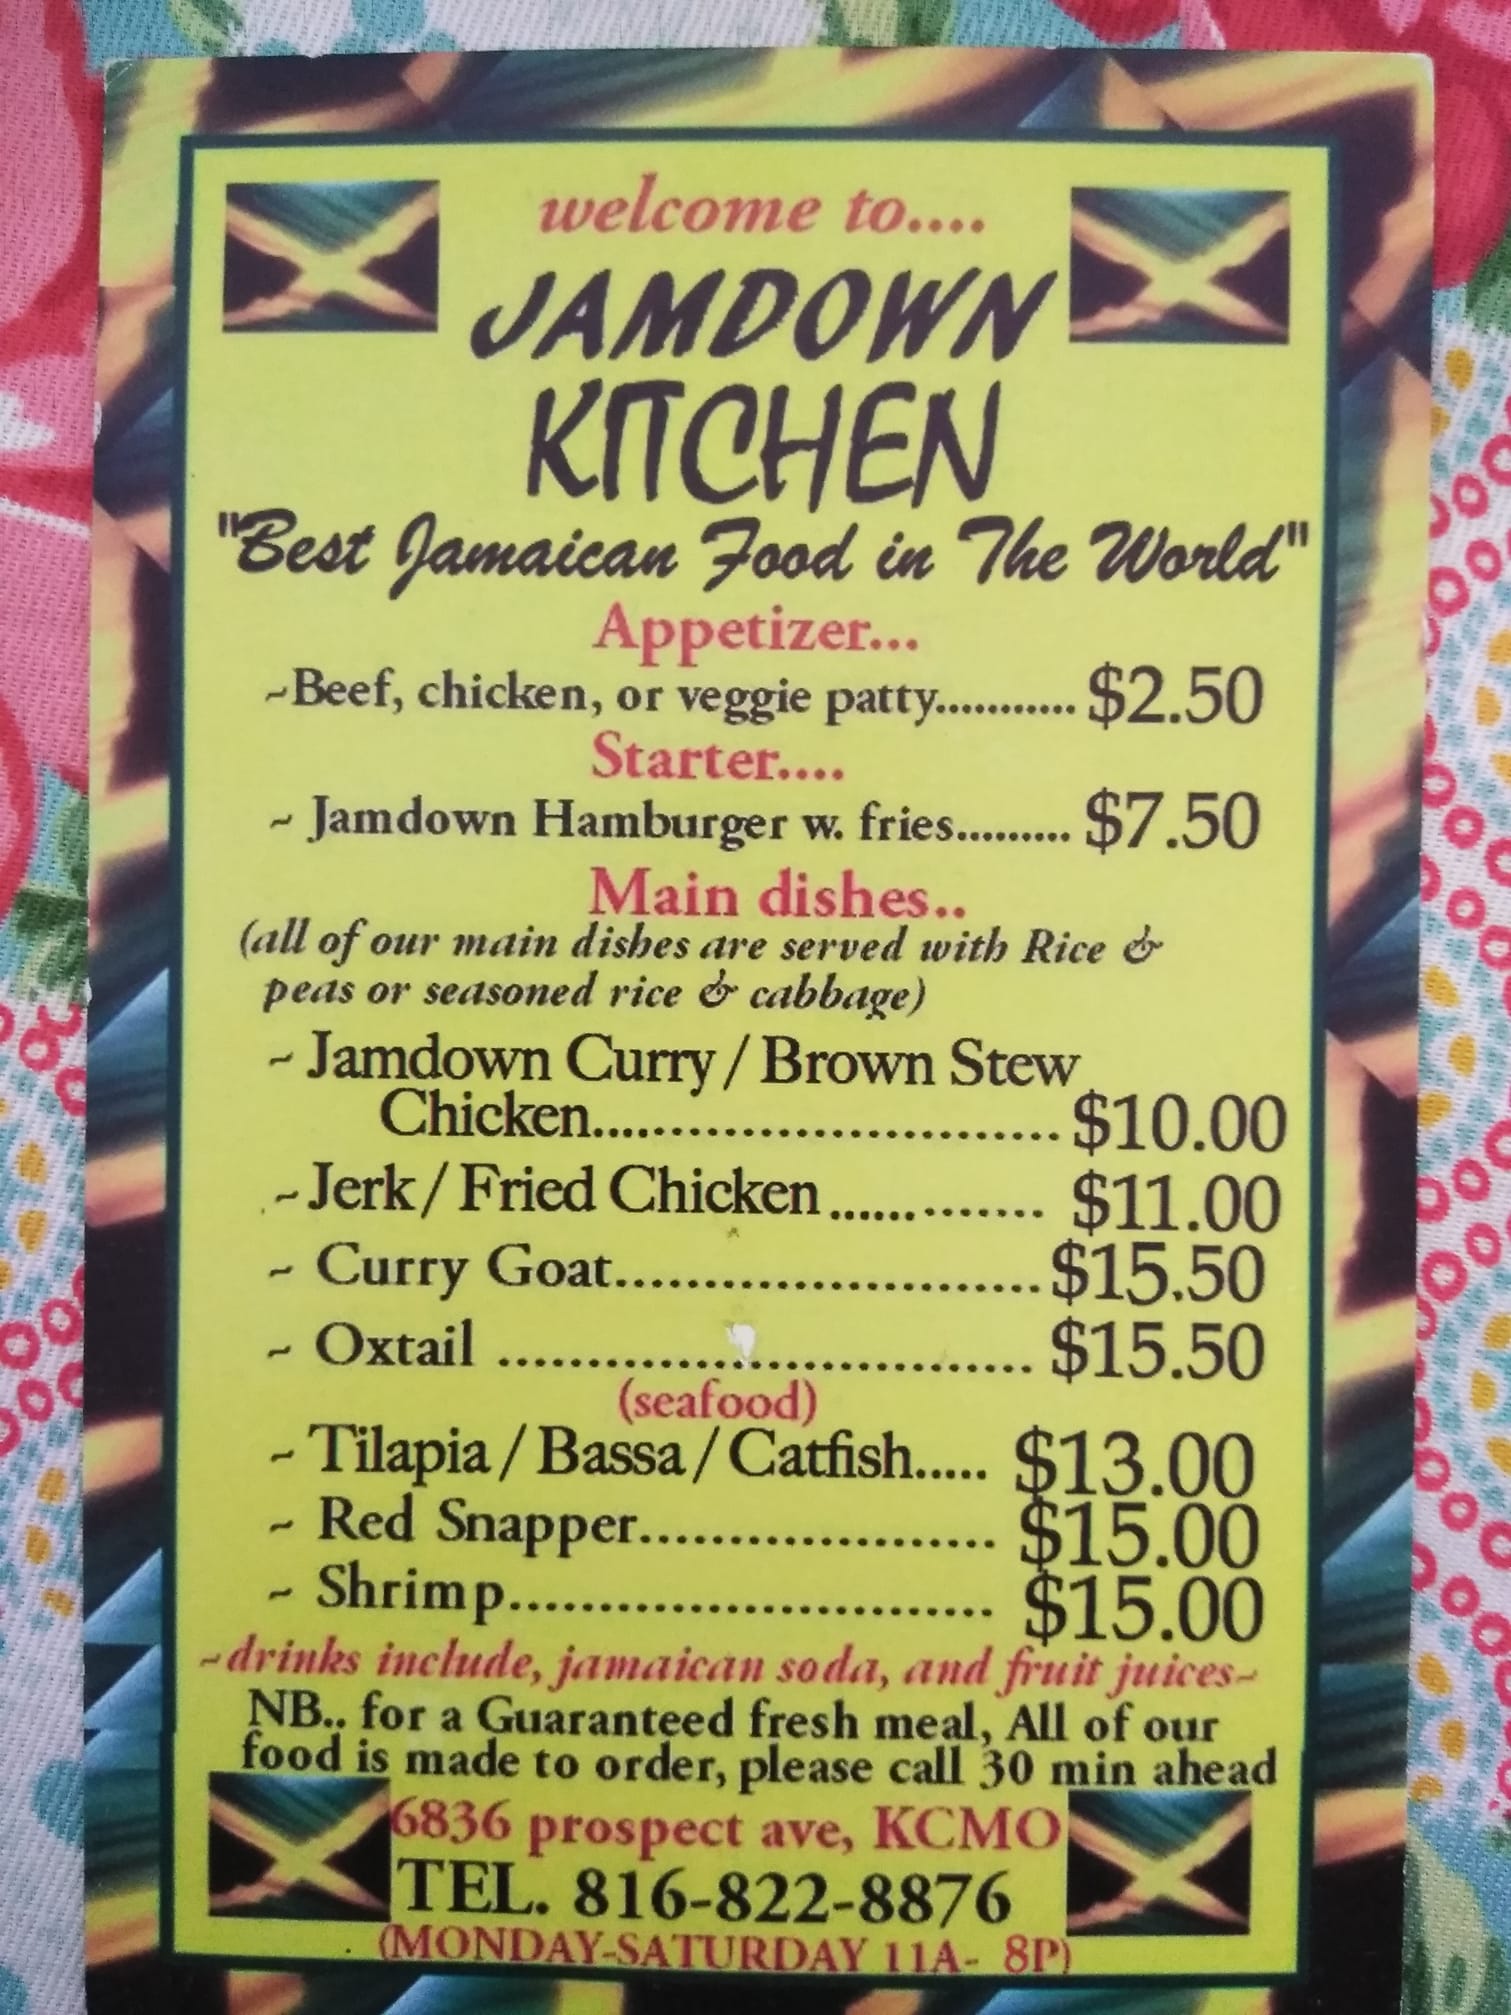 welcome to....
JAMDOWN
KITCHEN
"Best Jamaican Food in The World"
Appetizer...
~Beef, chicken, or veggie patty............ $2.50
Starter....
~ Jamdown Hamburger w. fries......... $7.50
Main dishes..
(all of our main dishes are served with Rice &
peas or seasoned rice & cabbage)
~ Jamdown Curry / Brown Stew
Chicken............................... $10.00
~Jerk / Fried Chicken ............. $11.00
~ Curry Goat........................ $15.50
~ Oxtail ............................... $15.50
(seafood)
~ Tilapia / Bassa / Catfish..... $13.00
~ Red Snapper.................... $15.00
~ Shrimp........................... $15.00
~drinks include, jamaican soda, and fruit juices~
NB.. for a Guaranteed fresh meal, All of our
food is made to order, please call 30 min ahead
6836 prospect ave, KCMO
TEL. 816-822-8876
(MONDAY-SATURDAY 11A- 8P)